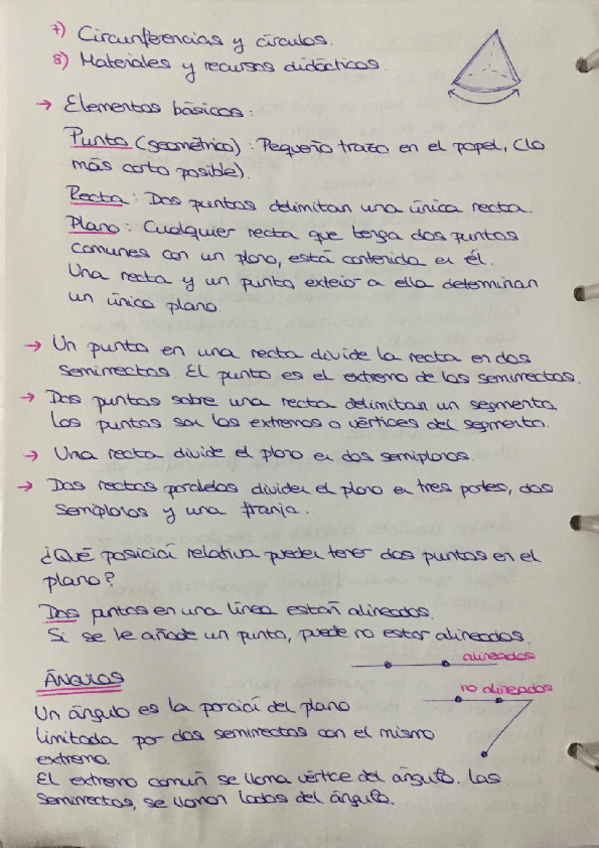 7) Circunferencias y círculos.
8) Materiales y recursos didácticos
→ Elementos básicos:
Punto (geométrico): Pequeño trazo en el papel, (lo
más corto posible).
Recta: Dos puntos delimitan una única recta.
Plano: Cualquier recta que tenga dos puntos
comunes con un plano, está contenida en él.
Una recta y un punto exterior a ella determinan
un único plano.
→ Un punto en una recta divide la recta en dos
semirrectas. El punto es el extremo de las semirrectas.
→ Dos puntos sobre una recta delimitan un segmento.
Los puntos son los extremos o vértices del segmento.
→ Una recta divide el plano en dos semiplanos.
→ Dos rectas paralelas dividen el plano en tres partes, dos
semiplanos y una franja.
¿Qué posición relativa pueden tener dos puntos en el
plano?
Dos puntos en una línea están alineados.
Si se le añade un punto, puede no estar alineados.
alineados
ÁNGULOS
no alineados
Un ángulo es la porción del plano
limitada por dos semirrectas con el mismo
extremo.
El extremo común se llama vértice del ángulo. Las
semirrectas, se llaman lados del ángulo.